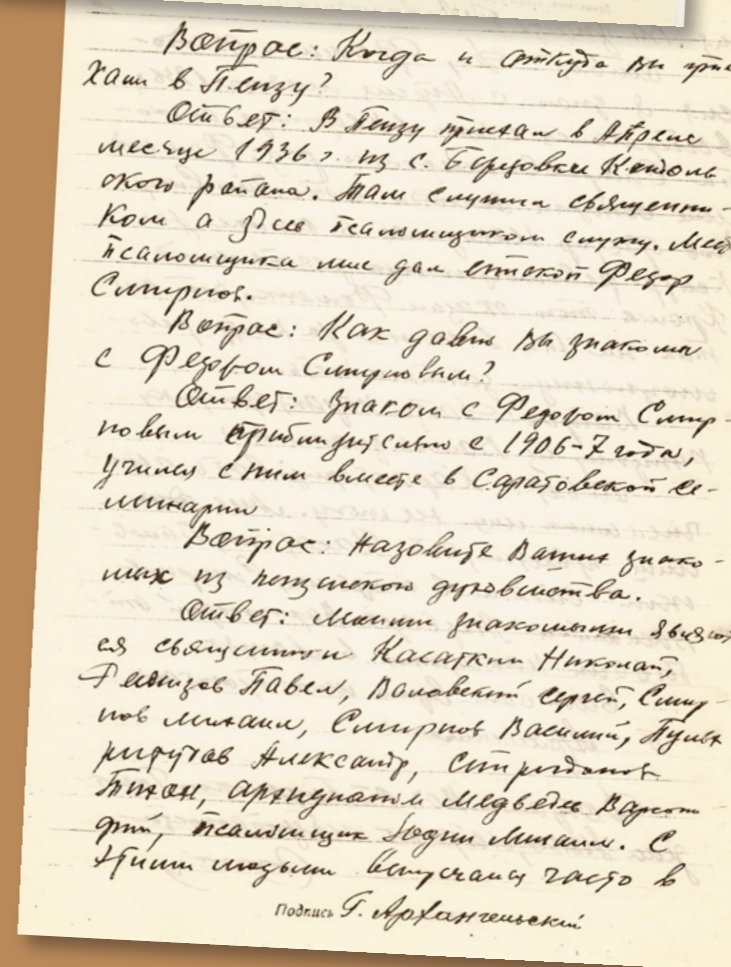 Вопрос: Когда и откуда вы прие
хали в Пензу?
Ответ: В Пензу приехал в Апреле
месяце 1936 г. из с. Березовки Кондоль
ского района. Там служил священни-
ком а здесь псаломщиком служу. Место
псаломщика мне дал епископ Федор
Смирнов.
Вопрос: Как давно вы знакомы
с Федором Смирновым?
Ответ: Знаком с Федором Смир-
новым приблизительно с 1906-7 года,
учился с ним вместе в Саратовской се-
минарии
Вопрос: Назовите Ваших знако-
мых из пензенского духовенства.
Ответ: Моими знакомыми являют
ся священники Касаткин Николай,
Павел, Сергей, Смир-
нов Михаил, Смирнов Василий,
Александр,
Тихон, Медведев Варсоно
фий, псаломщик Михаил. С
этими людьми встречался часто в
Подпись Г. Архангельский